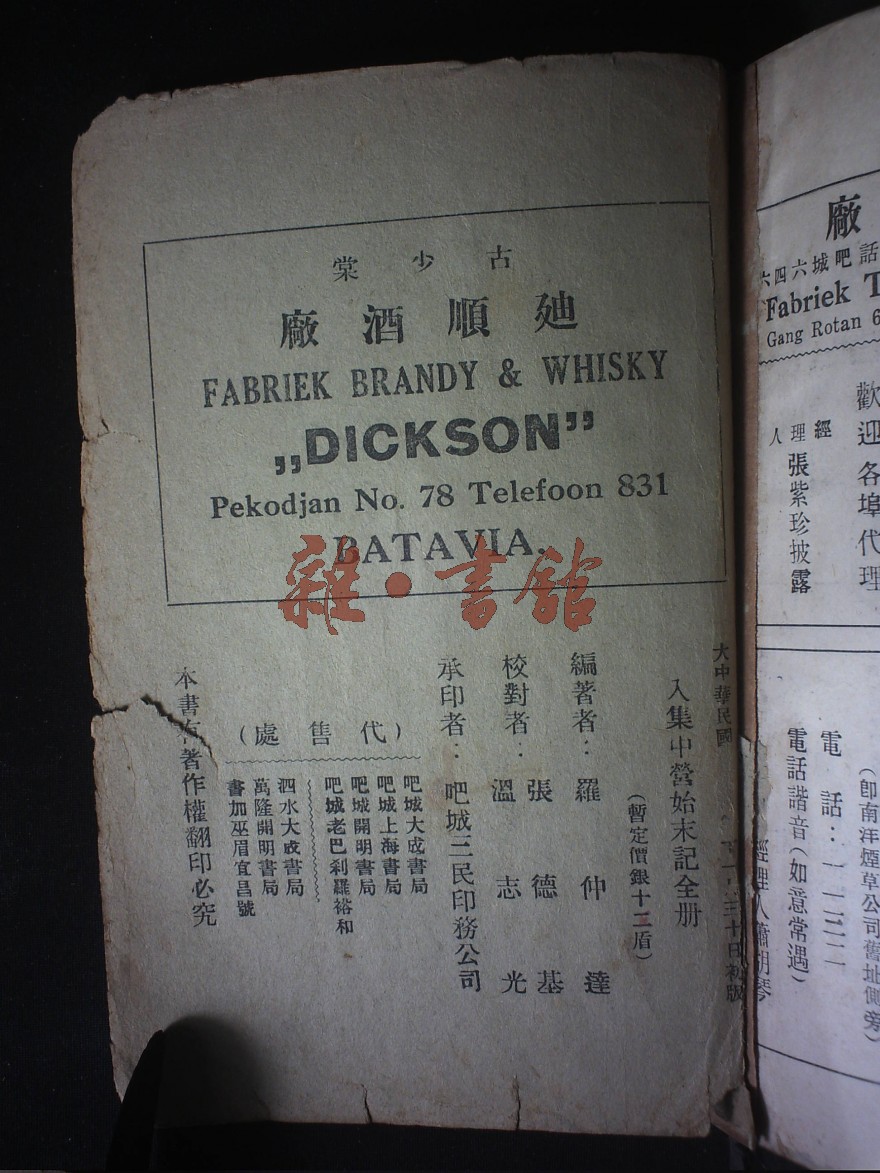 古少棠
廸順酒廠
FABRIEK BRANDY & WHISKY
„DICKSON”
Pekodjan No. 78 Telefoon 831
BATAVIA.
雜·書館
大中華民國
三十日初版
入集中營始末記全册
（暫定價銀十二盾）
編著者：羅仲達
校對者：張德基
溫志光
承印者：吧城三民印務公司
（代售處）
吧城大成書局
吧城上海書局
吧城開明書局
吧城老巴刹羅裕和
泗水大成書局
萬隆開明書局
書加巫眉宜昌號
本書有著作權翻印必究
廠
話吧城六四六
Fabriek T
Gang Rotan 6
歡迎各埠代理
經理人
張紫珍披露
（卽南洋煙草公司舊址側旁）
電話：一一三二
電話諧音（如意常遇）
經理人蕭胡琴